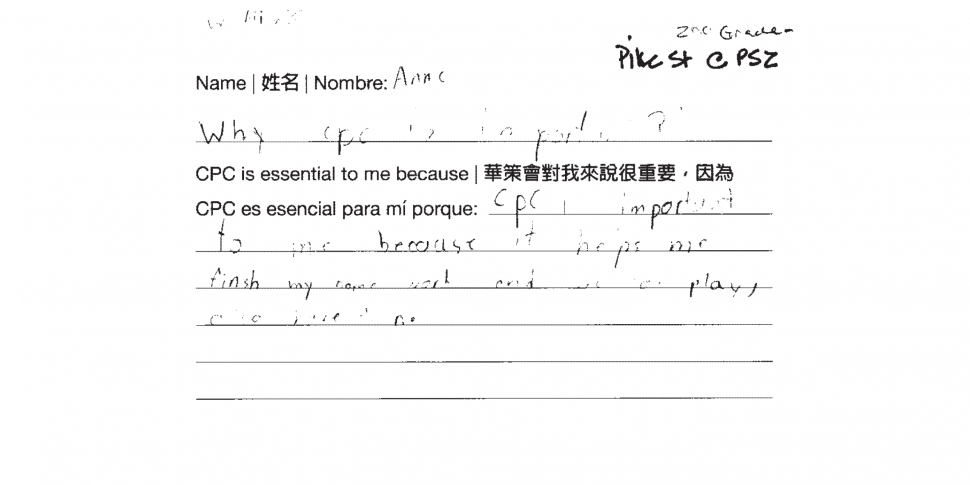 2nd Grade-
Pike St @ PS2
Name | 姓名 | Nombre: Anne
Why cpc is important?
CPC is essential to me because | 華策會對我來說很重要，因為
CPC es esencial para mí porque: CPC important
to me because it helps me
finsh my work and play,